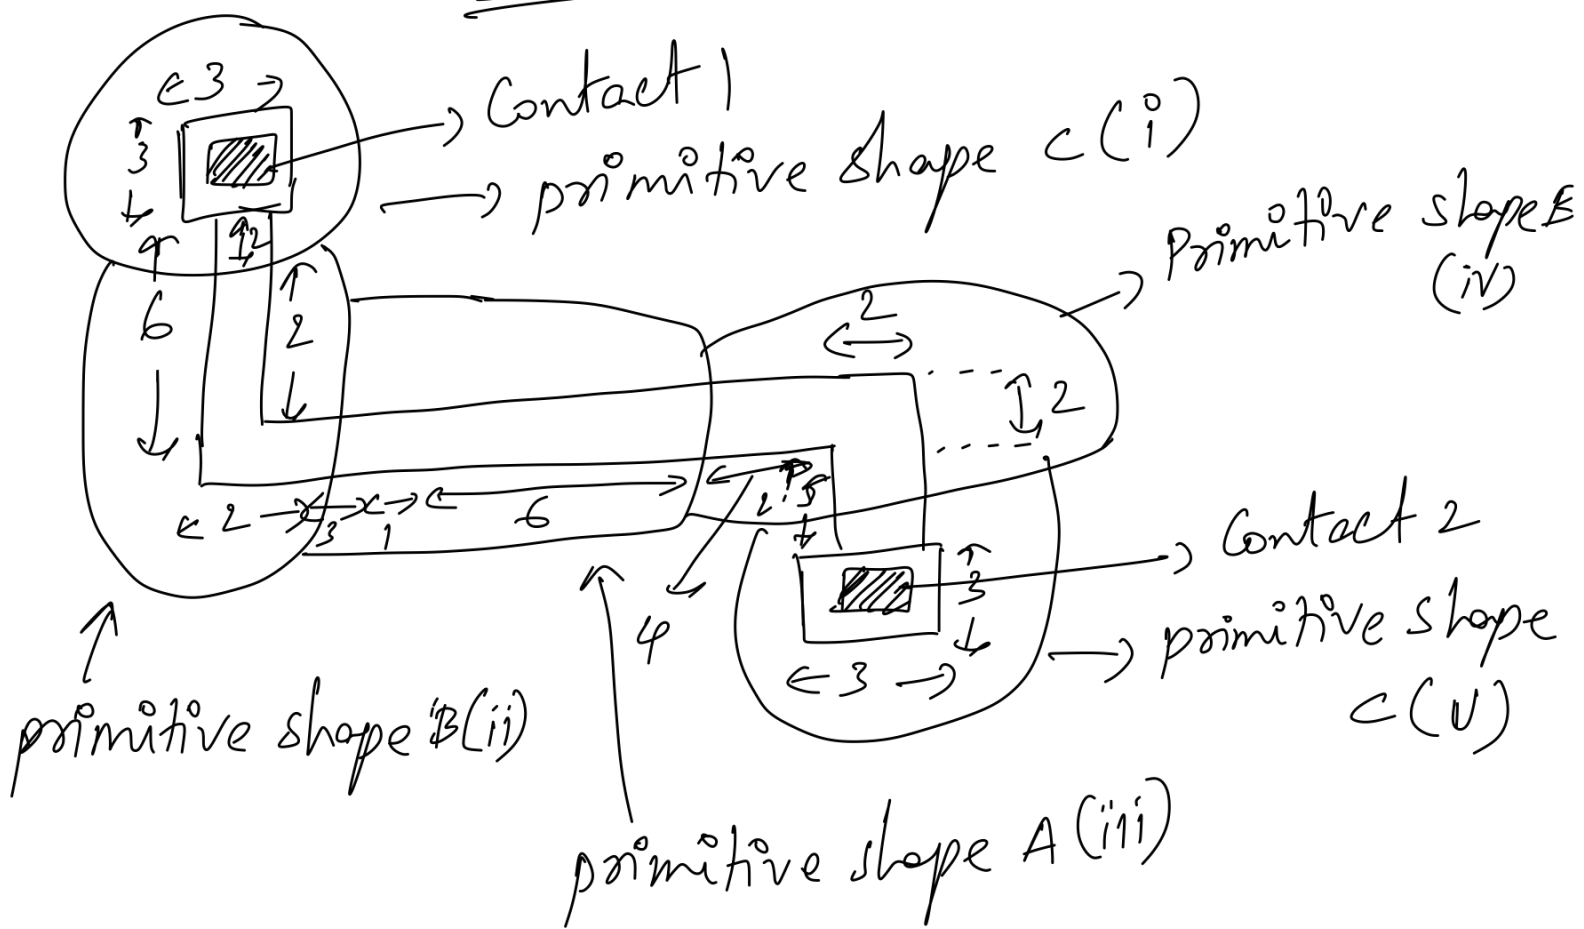 3
Contact 1
3
primitive shape C(i)
2
Primitive shape E
(iv)
6
2
2
2
2
3
1
6
4
3
Contact 2
3
primitive shape
C(V)
primitive shape B(ii)
primitive shape A(iii)